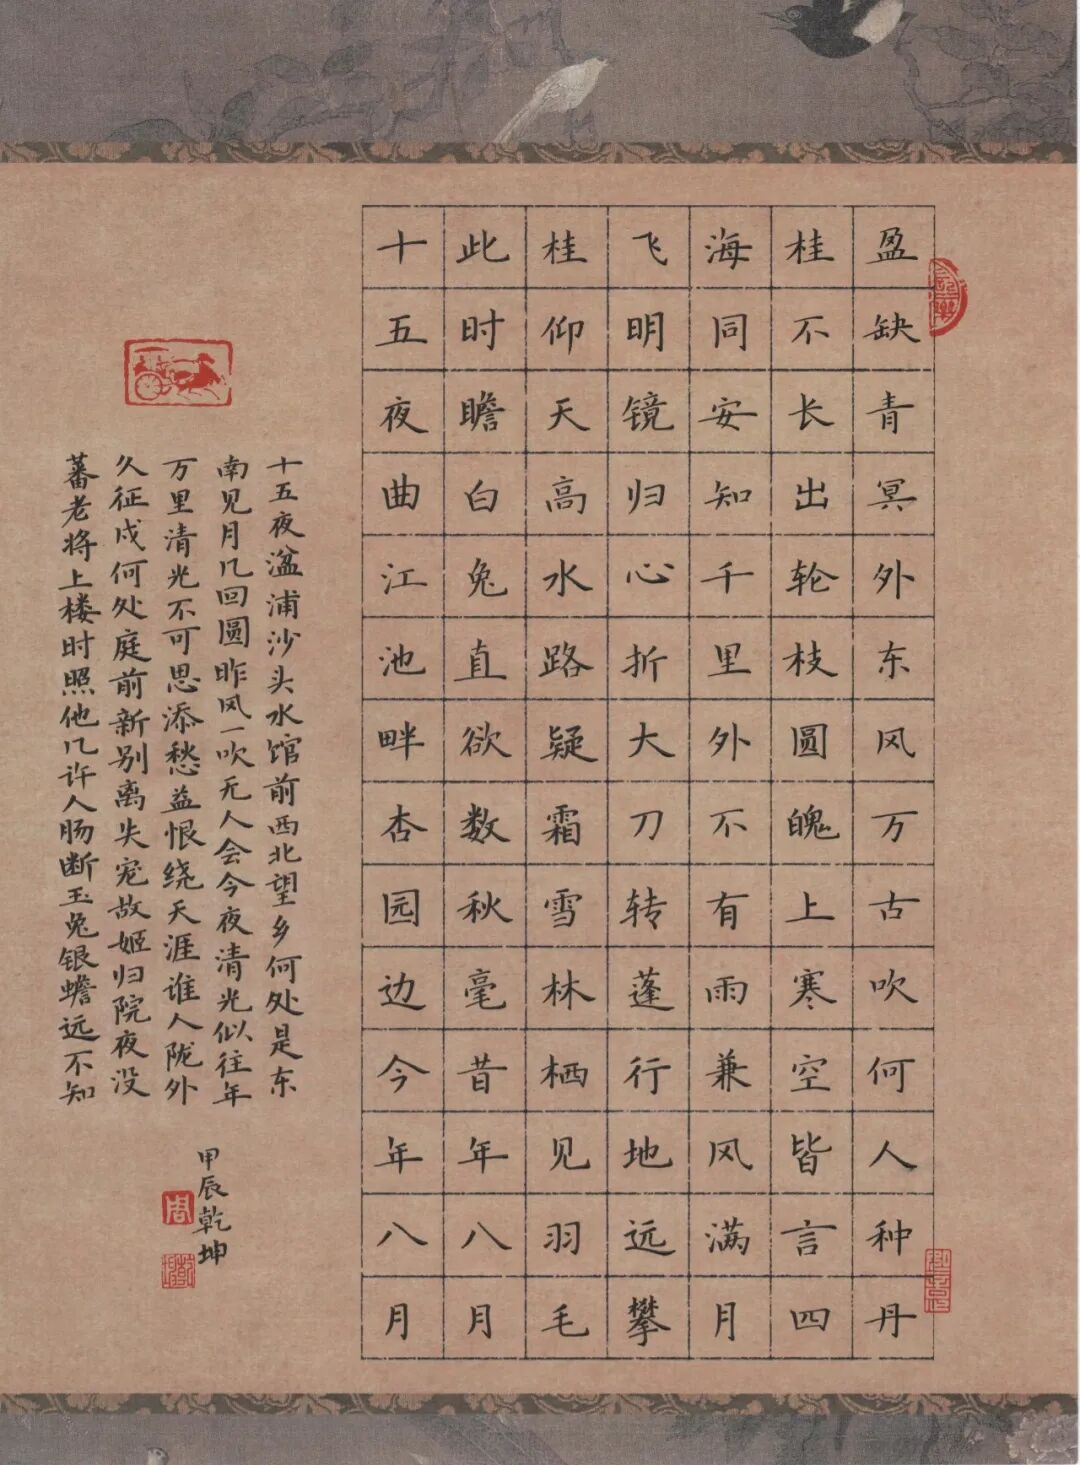 盈缺青冥外东风万古吹何人种丹
桂不长出轮枝圆魄上寒空皆言四
海同安知千里外不有雨兼风满月
飞明镜归心折大刀转蓬行地远攀
桂仰天高水路疑霜雪林栖见羽毛
此时瞻白兔直欲数秋毫昔年八月
十五夜曲江池畔杏园边今年八月
十五夜湓浦沙头水馆前西北望乡何处是东
南见月几回圆昨风一吹无人会今夜清光似往年
万里清光不可思添愁益恨绕天涯谁人陇外
久征戍何处庭前新别离失宠故姬归院夜没
蕃老将上楼时照他几许人肠断玉兔银蟾远不知
甲辰乾坤
周